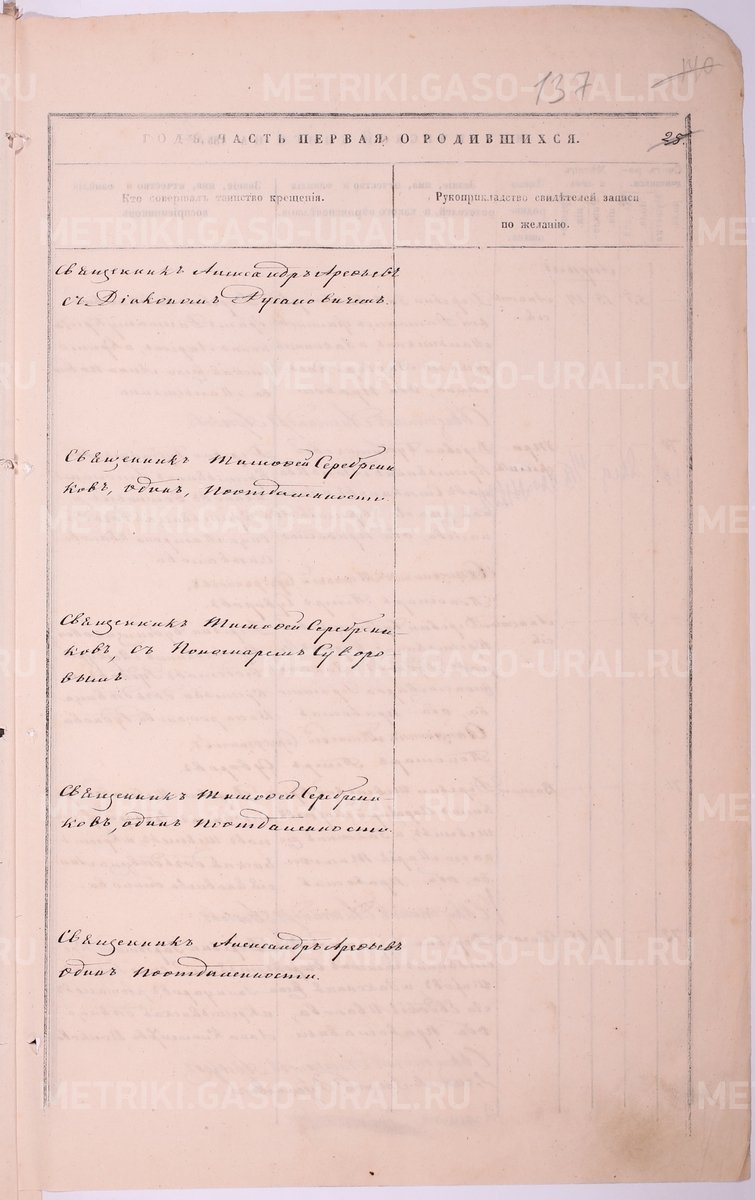 137
140
ГОДЪ, ЧАСТЬ ПЕРВАЯ, О РОДИВШИХСЯ.
28.
Кто совершалъ таинство крещенія.
Рукоприкладство свидѣтелей записи
по желанію.
Священникъ Александръ Арефьевъ
съ Діакономъ Русановичемъ.
Священникъ Тимофей Серебрени
ковъ, одинъ, по отдаленности.
Священникъ Тимофей Серебрени
ковъ, съ Пономаремъ Суворо
вымъ
Священникъ Тимофей Серебрени
ковъ, одинъ по отдаленности.
Священникъ Александръ Арефьевъ
одинъ по отдаленности.
METRIKI.GASO-URAL.RU